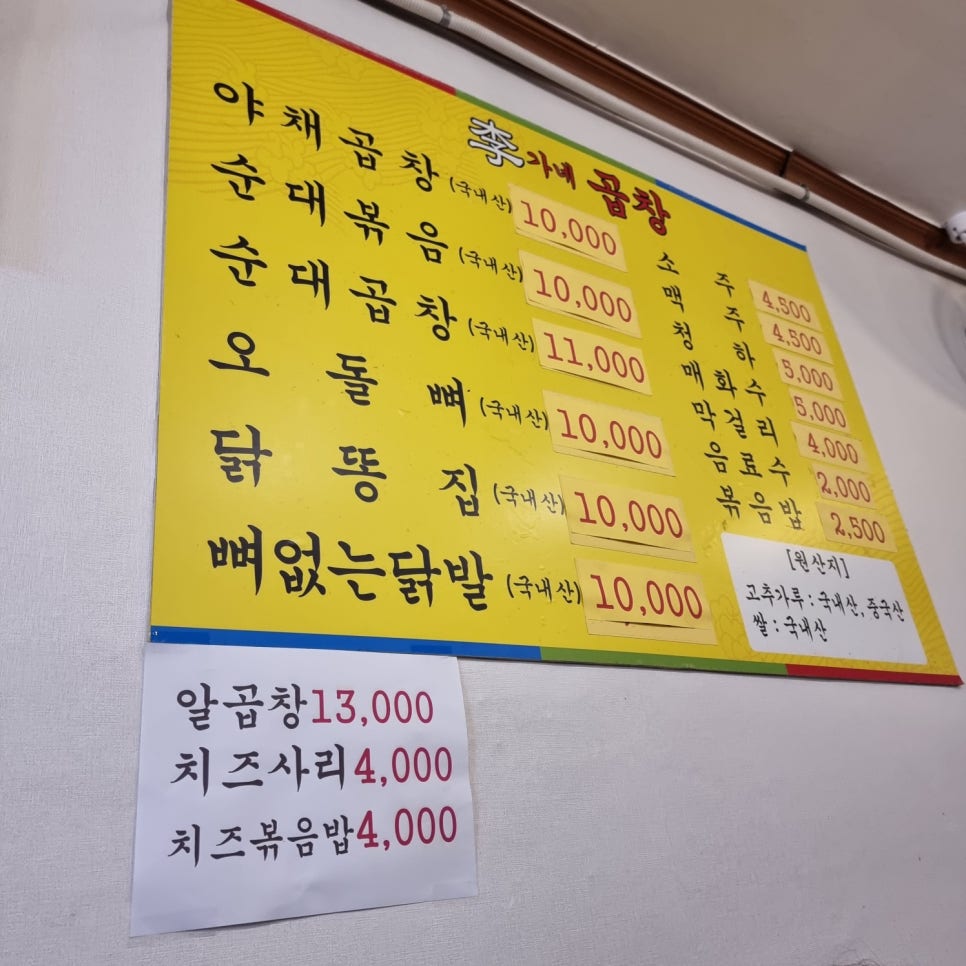 李가네 곱창
야채곱창(국내산) 10,000
순대볶음(국내산) 10,000
순대곱창(국내산) 11,000
오돌뼈(국내산) 10,000
닭똥집(국내산) 10,000
뼈없는닭발(국내산) 10,000
소주 4,500
맥주 4,500
청하 5,000
매화수 5,000
막걸리 4,000
음료수 2,000
볶음밥 2,500
[원산지]
고추가루 : 국내산, 중국산
쌀 : 국내산
알곱창 13,000
치즈사리 4,000
치즈볶음밥 4,000